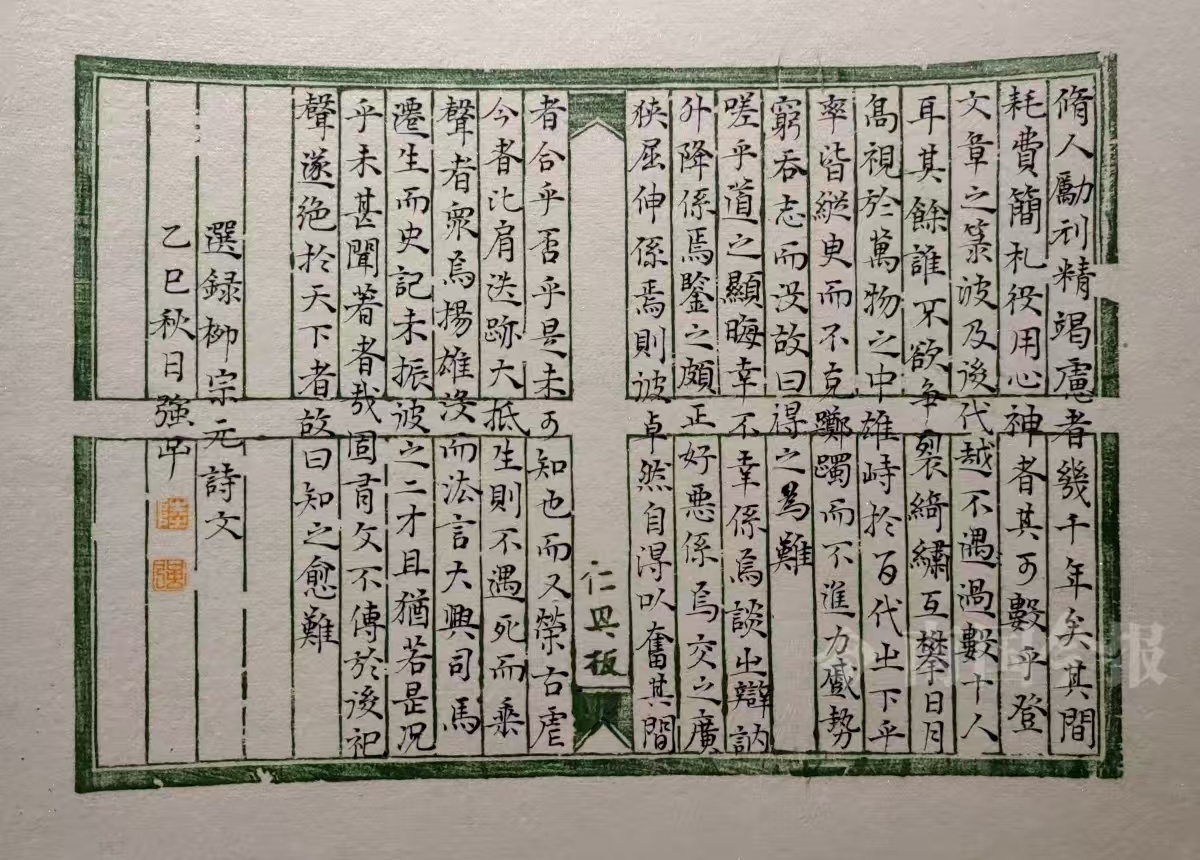 脩人勵刋精竭慮者幾千年矣其間
耗費簡札役用心神者其可數乎登
文章之籙波及後代越不遇過數十人
耳其餘誰不欲争裂綺繡互攀日月
高視於萬物之中雄峙於百代之下乎
率皆縱臾而不克躑躅而不進力蹙勢
窮吞志而没故曰得之爲難
嗟乎道之顯晦幸不幸係焉談之辯訥
升降係焉鑒之頗正好惡係焉交之廣
狹屈伸係焉則彼卓然自得以奮其間
仁興板
者合乎否乎是未可知也而又榮古虐
今者比肩迭跡大抵生則不遇死而垂
聲者衆焉揚雄没而法言大興司馬
遷生而史記未振彼之二才且猶若是况
乎未甚聞著者哉固有文不傳於後祀
聲遂绝於天下者故曰知之愈難
選録柳宗元詩文
乙巳秋日強